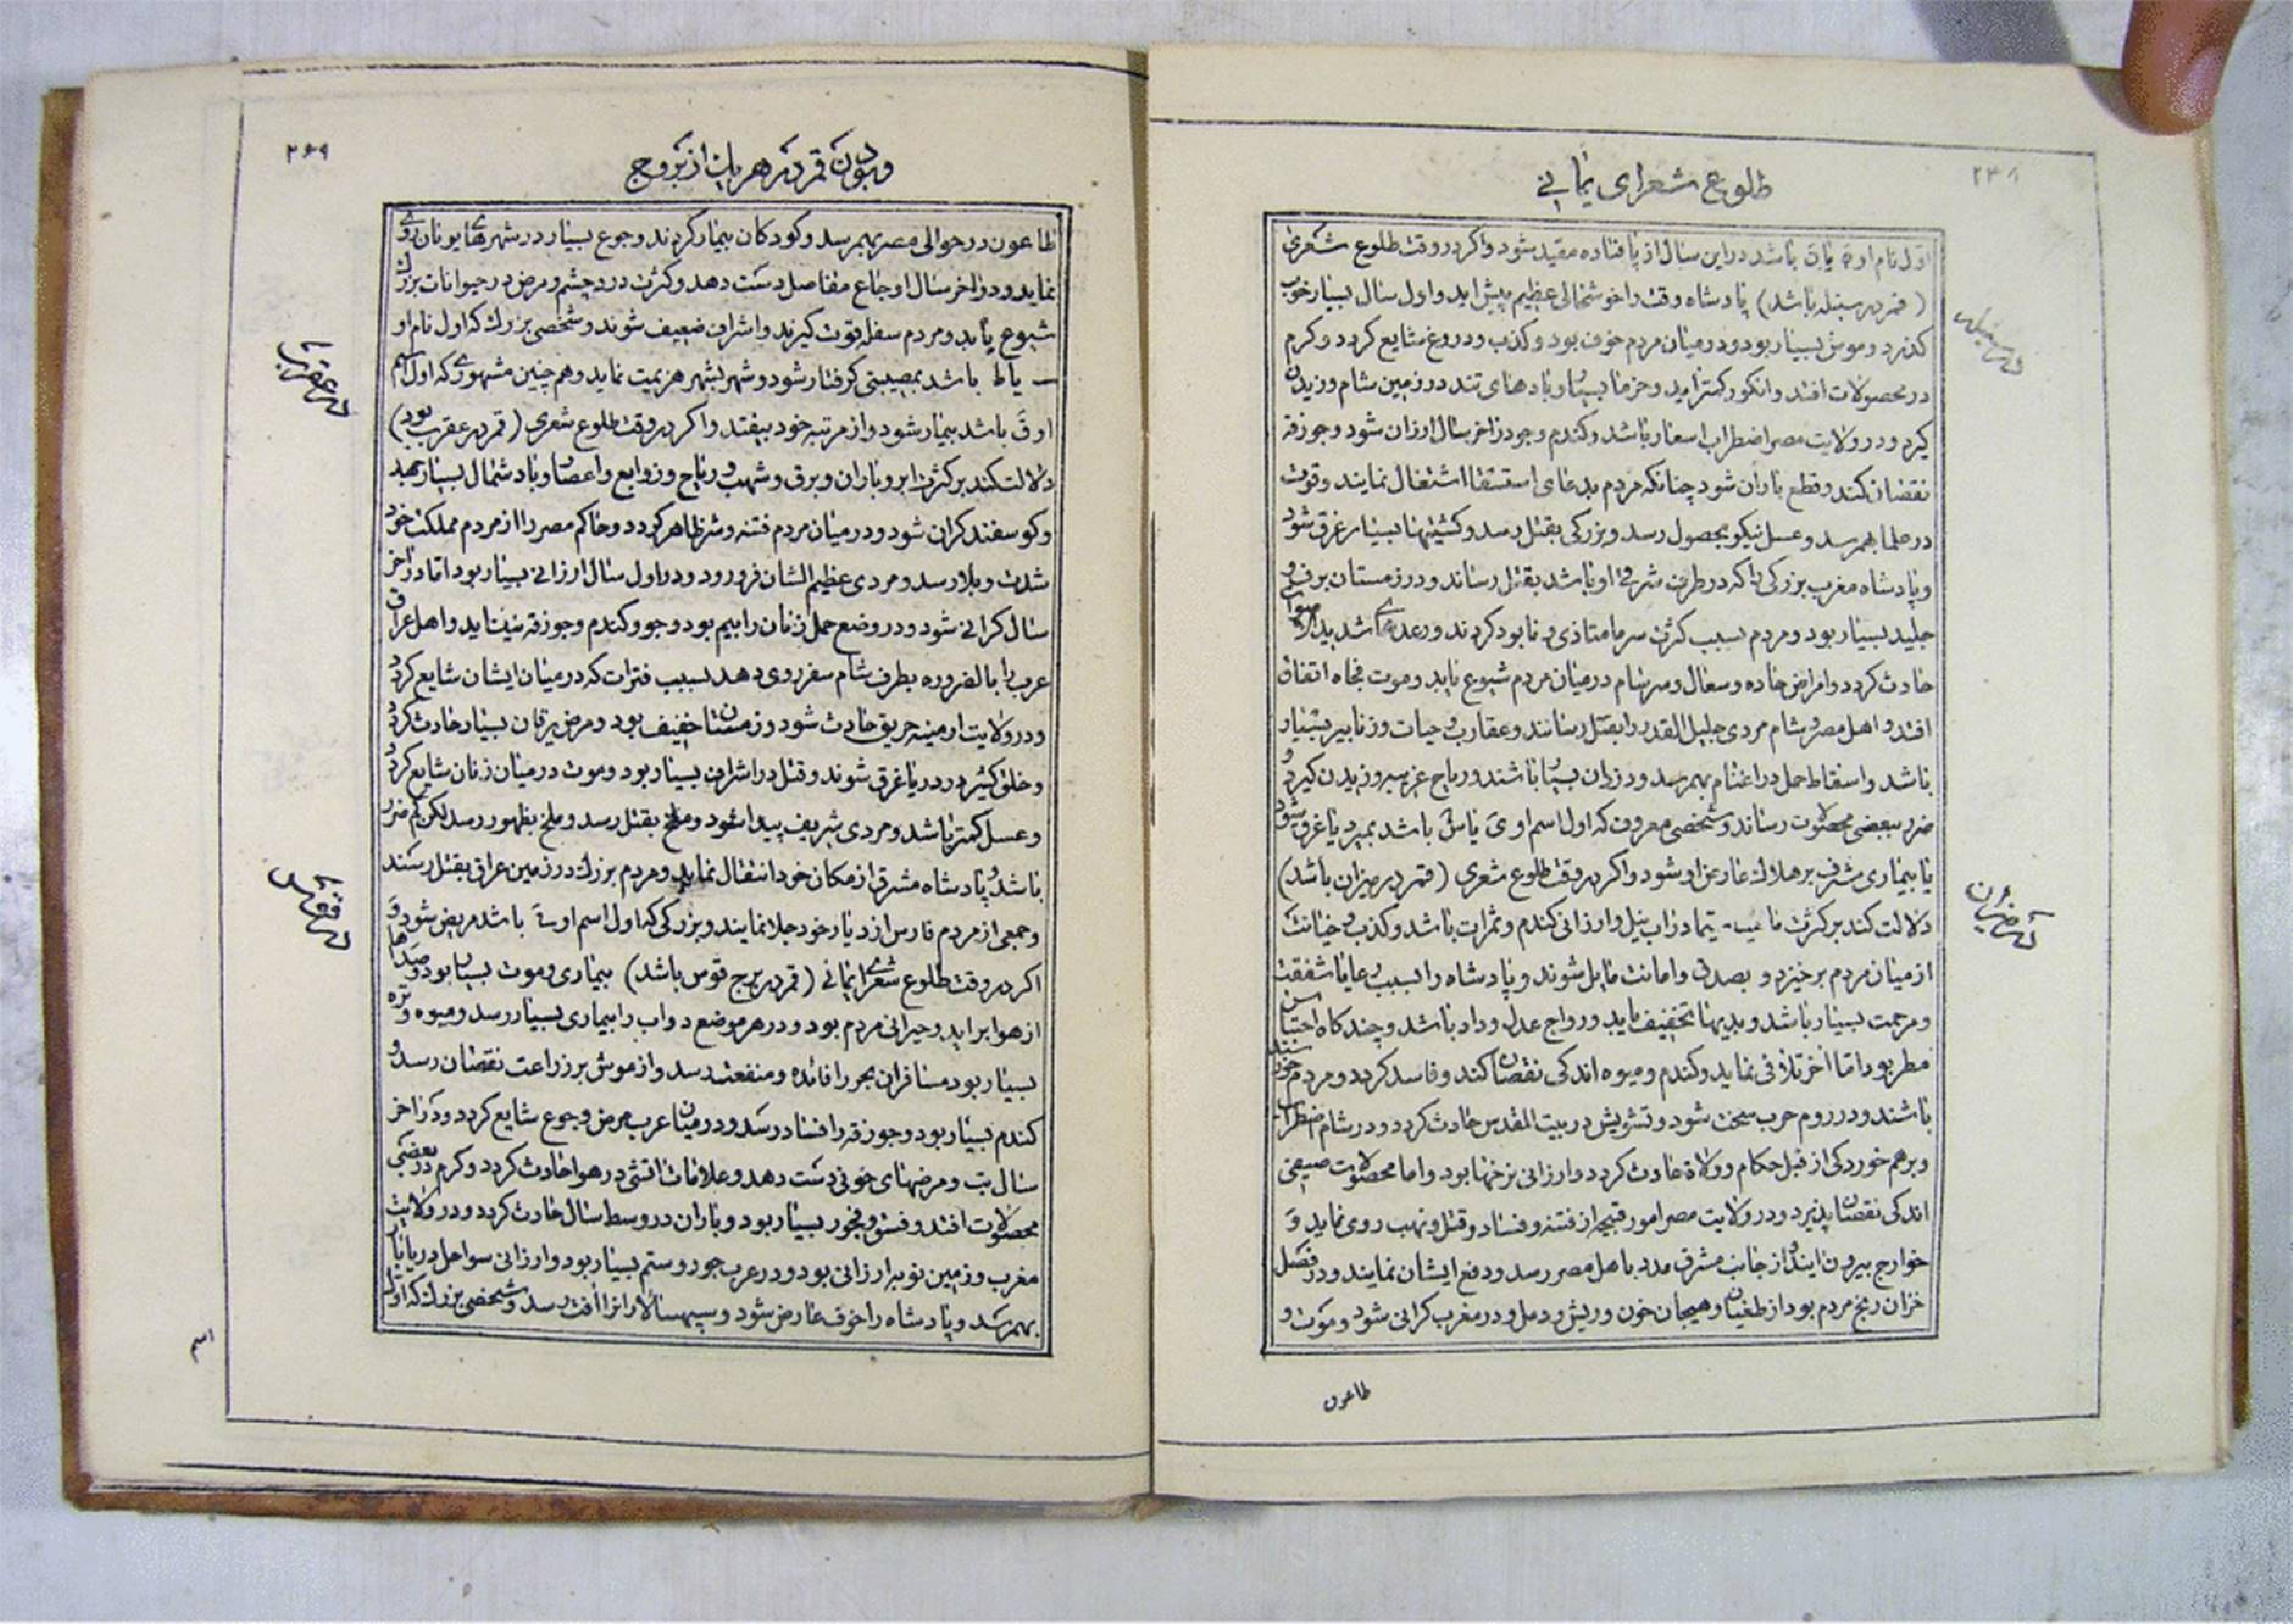 ۲۳۸
طلوع شعرای یمانی
اول نام او ق یا ن باشد در این سال از پا فتاده مقید شود و اگر در وقت طلوع شعری
(قمر در سنبله باشد) پادشاه وقت را خوشحالی عظیم پیش آید و اول سال بسیار خوب
گذرد و موش بسیار بود و در میان مردم خوف بود و کذب و دروغ شایع گردد و کرم
در محصولات افتد و انگور کمتر آید و خرما بسیار و بادهای تند در زمین شام وزیدن
گیرد و در ولایت مصر اضطراب اسعار باشد و گندم و جو در آخر سال ارزان شود و جوزقه
نقصان کند و قطع باران شود چنانکه مردم بدعای استسقا اشتغال نمایند و قوت
در علما بهمرسد و عسل نیکو بحصول رسد و بزرگی بقتل رسد و کشتیها بسیار غرق شود
و پادشاه مغرب بزرگی را که در طرف شرقی او باشد بقتل رساند و در زمستان برف و
جلید بسیار بود و مردم بسبب کثرت سرما متاذی و نابود گردند و رعدهای شدید
حادث گردد و امراض حاده و سعال و سرسام در میان مردم شیوع یابد و موت فجاه اتفاق
افتد و اهل مصر و شام مردی جلیل القدر را بقتل رسانند و عقارب و حیات و زنابیر بسیار
باشد و اسقاط حمل در اغنام بهمرسد و دزدان بسیار باشند و ریاح غربیه وزیدن گیرد و
ضرر ببعضی محصولات رساند و شخصی معروف که اول اسم او ی یا س باشد بمیرد یا غرق شود
یا بیماری مشرف بر هلاک عارض او شود و اگر در وقت طلوع شعری (قمر در میزان باشد)
دلالت کند بر کثرت ما سیما در آب نیل و ارزانی گندم و ثمرات باشد و کذب و خیانت
از میان مردم برخیزد و بصدق و امانت مایل شوند و پادشاه را بسبب رعایا شفقت
و مرحمت بسیار باشد و بدیها تخفیف یابد و رواج عدل و داد باشد و چندگاه احتباس
مطر بود اما آخر تلافی نماید و گندم و میوه اندکی نقصان کند و فاسد گردد و مردم خورسند
باشند و در روم حرب سخت شود و تشویش در بیت المقدس حادث گردد و در شام اضطراب
و برهم خوردگی از قبل حکام و ولاة حادث گردد و ارزانی نرخها بود و اما محصولات صیفی
اندکی نقصان پذیرد و در ولایت مصر امور قبیحه از فتنه و فساد و قتل و نهب روی نماید و
خوارج بیرون آیند و از جانب مشرق مدد باهل مصر رسد و دفع ایشان نمایند و در فصل
خزان رنج مردم بود از طغیان و هیجان خون و ریش و دمل و در مغرب گرانی شود و موت و
طاعون
در سنبله
در میزان
۲۶۹
و بودن قمر در هر یک از بروج
طاعون در حوالی مصر بهمرسد و کودکان بیمار گردند و جوع بسیار در شهرهای یونان روی
نماید و در آخر سال اوجاع مفاصل دست دهد و کثرت درد چشم و مرض در حیوانات بزرگ
شیوع یابد و مردم سفله قوت گیرند و اشراف ضعیف شوند و شخصی بزرگ که اول نام او
یا ط باشد بمصیبتی گرفتار شود و شهر بشهر هزیمت نماید و همچنین مشهوری که اول اسم
او ق باشد بیمار شود و از مرتبه خود بیفتد و اگر در وقت طلوع شعری (قمر در عقرب بود)
دلالت کند بر کثرت ابر و باران و برق و شهب و ریاح و زوابع و اعصار و باد شمال بسیار جهد
و گوسفند گران شود و در میان مردم فتنه و شر ظاهر گردد و حاکم مصر را از مردم مملکت خود
شدت و بلا رسد و مردی عظیم الشان فرو رود و در اول سال ارزانی بسیار بود اما در آخر
سال گرانی شود و در وضع حمل زنان را بیم بود و جو و گندم و جوزقه نیک آید و اهل عراق
عرب را بالضروره بطرف شام سفر روی دهد بسبب فترات که در میان ایشان شایع گردد
و در ولایت ارمینه حریق حادث شود و زمستان خفیف بود و مرض یرقان بسیار حادث گردد
و خلق کثیر در دریا غرق شوند و قتل در اشراف بسیار بود و موت در میان زنان شایع گردد
و عسل کمتر باشد و مردی شریف پیدا شود و بقتل رسد و ملخ بظهور رسد لکن کم ضرر
باشد و پادشاه مشرق از مکان خود انتقال نماید و مردم بزرگ در زمین عراق بقتل رسند
و جمعی از مردم فارس از دیار خود جلا نمایند و بزرگی که اول اسم او باشد مریض شود و
اگر در وقت طلوع شعرای یمانی (قمر در برج قوس باشد) بیماری و موت بسیار بود و صداها
از هوا برآید و حیرانی مردم بود و در هر موضع دواب را بیماری بسیار رسد و میوه و تره
بسیار بود مسافران بحر را فائده و منفعت رسد و از موش بر زراعت نقصان رسد و
گندم بسیار بود و جوزقه را فساد رسد و در میان عرب مرض و جوع شایع گردد و در آخر
سال تب و مرضهای خونی دست دهد و علامات آتشی در هوا حادث گردد و کرم در بعضی
محصولات افتد و فسق و فجور بسیار بود و باران در وسط سال حادث گردد و در ولایت
مغرب و زمین نوبه ارزانی بود و در عرب جور و ستم بسیار بود و ارزانی سواحل دریا بار
بهمرسد و پادشاه را خوف عارض شود و سپهسالاران را آفت رسد و شخصی بزرگ که اول
اسم
در عقرب
در قوس